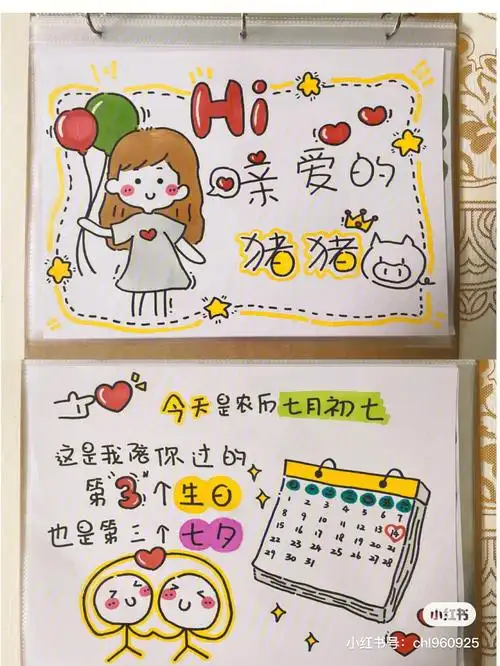 Hi
亲爱的
猪猪
今天是农历七月初七
这是我陪你过的
第3个生日
也是第三个七夕
1 2 3 4 5 6 7
8 9 10 11 12 13 14
15 16 17 18 19 20 21
22 23 24 25 26 27 28
29 30 31
小红书
小红书号: chl960925